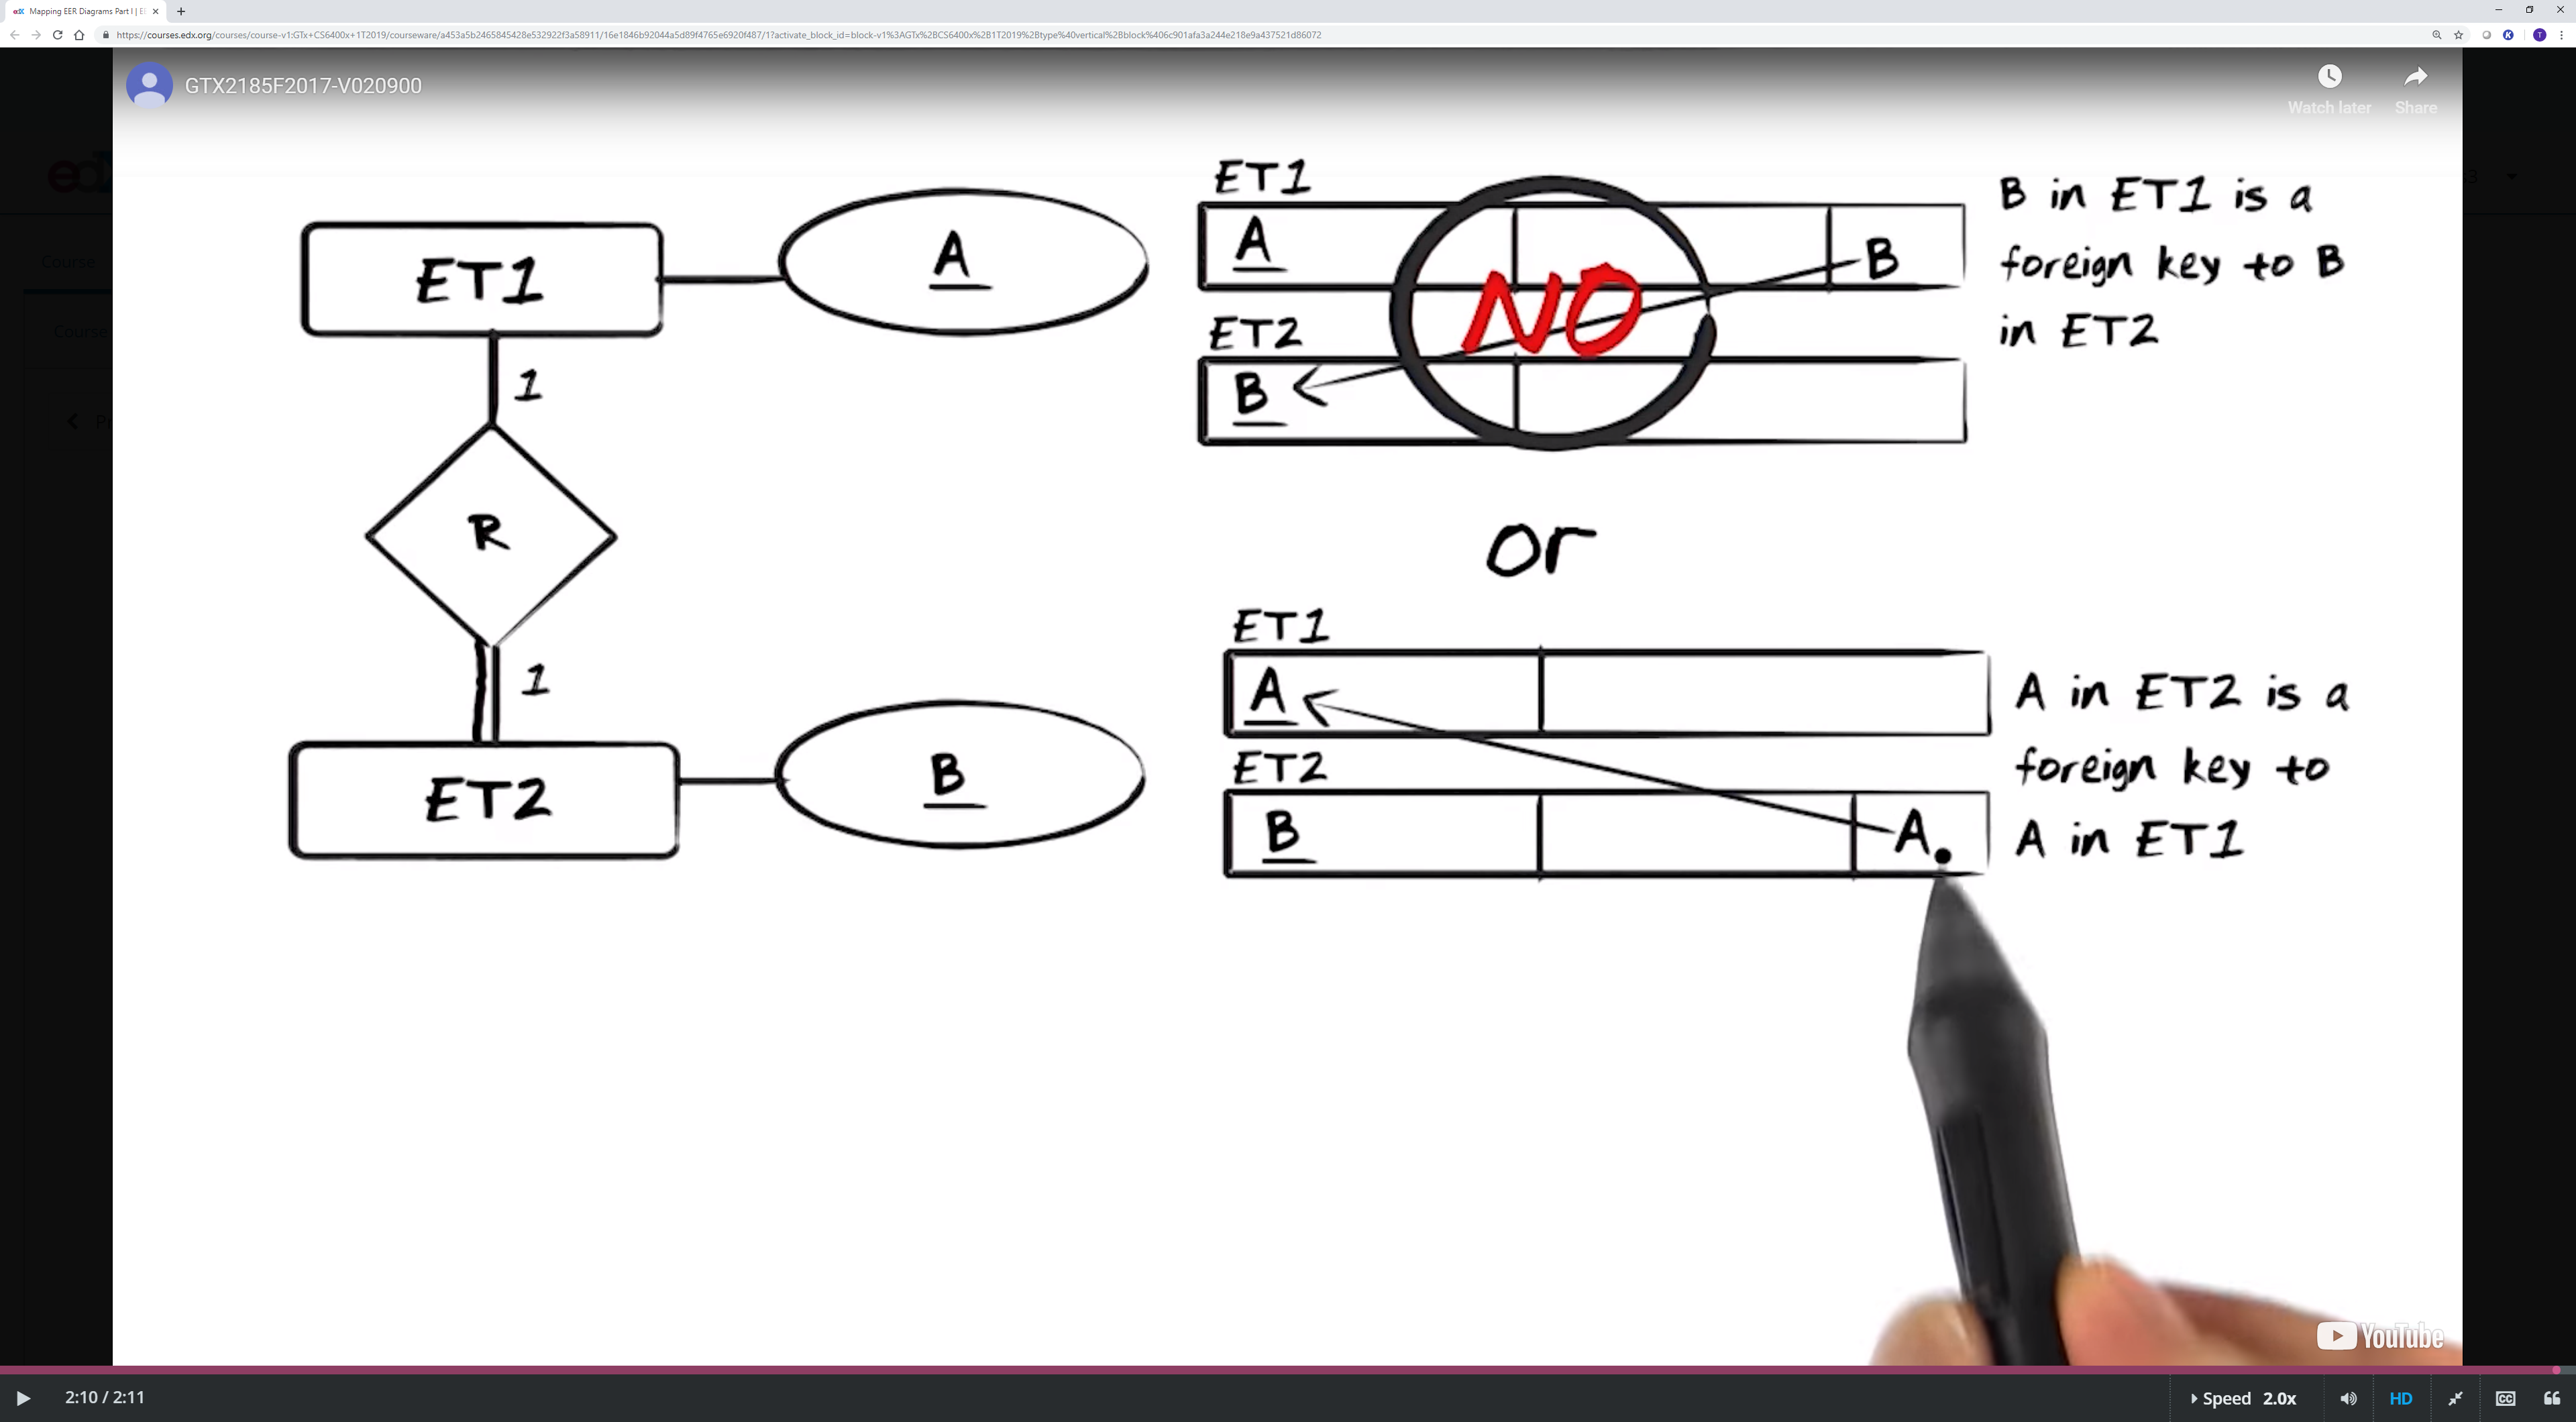 Mapping EER Diagrams Part I | E
https://courses.edx.org/courses/course-v1:GTx+CS6400x+1T2019/courseware/a453a5b2465845428e532922f3a58911/16e1846b92044a5d89f4765e6920f487/1?activate_block_id=block-v1%3AGTx%2BCS6400x%2B1T2019%2Btype%40vertical%2Bblock%406c901afa3a244e218e9a437521d86072
GTX2185F2017-V020900
Watch later
Share
Course
Course
ET1
A
1
R
1
ET2
B
ET1
A
B
NO
ET2
B
B in ET1 is a
foreign key to B
in ET2
or
ET1
A
ET2
B
A
A in ET2 is a
foreign key to
A in ET1
YouTube
2:10 / 2:11
Speed 2.0x
HD
CC